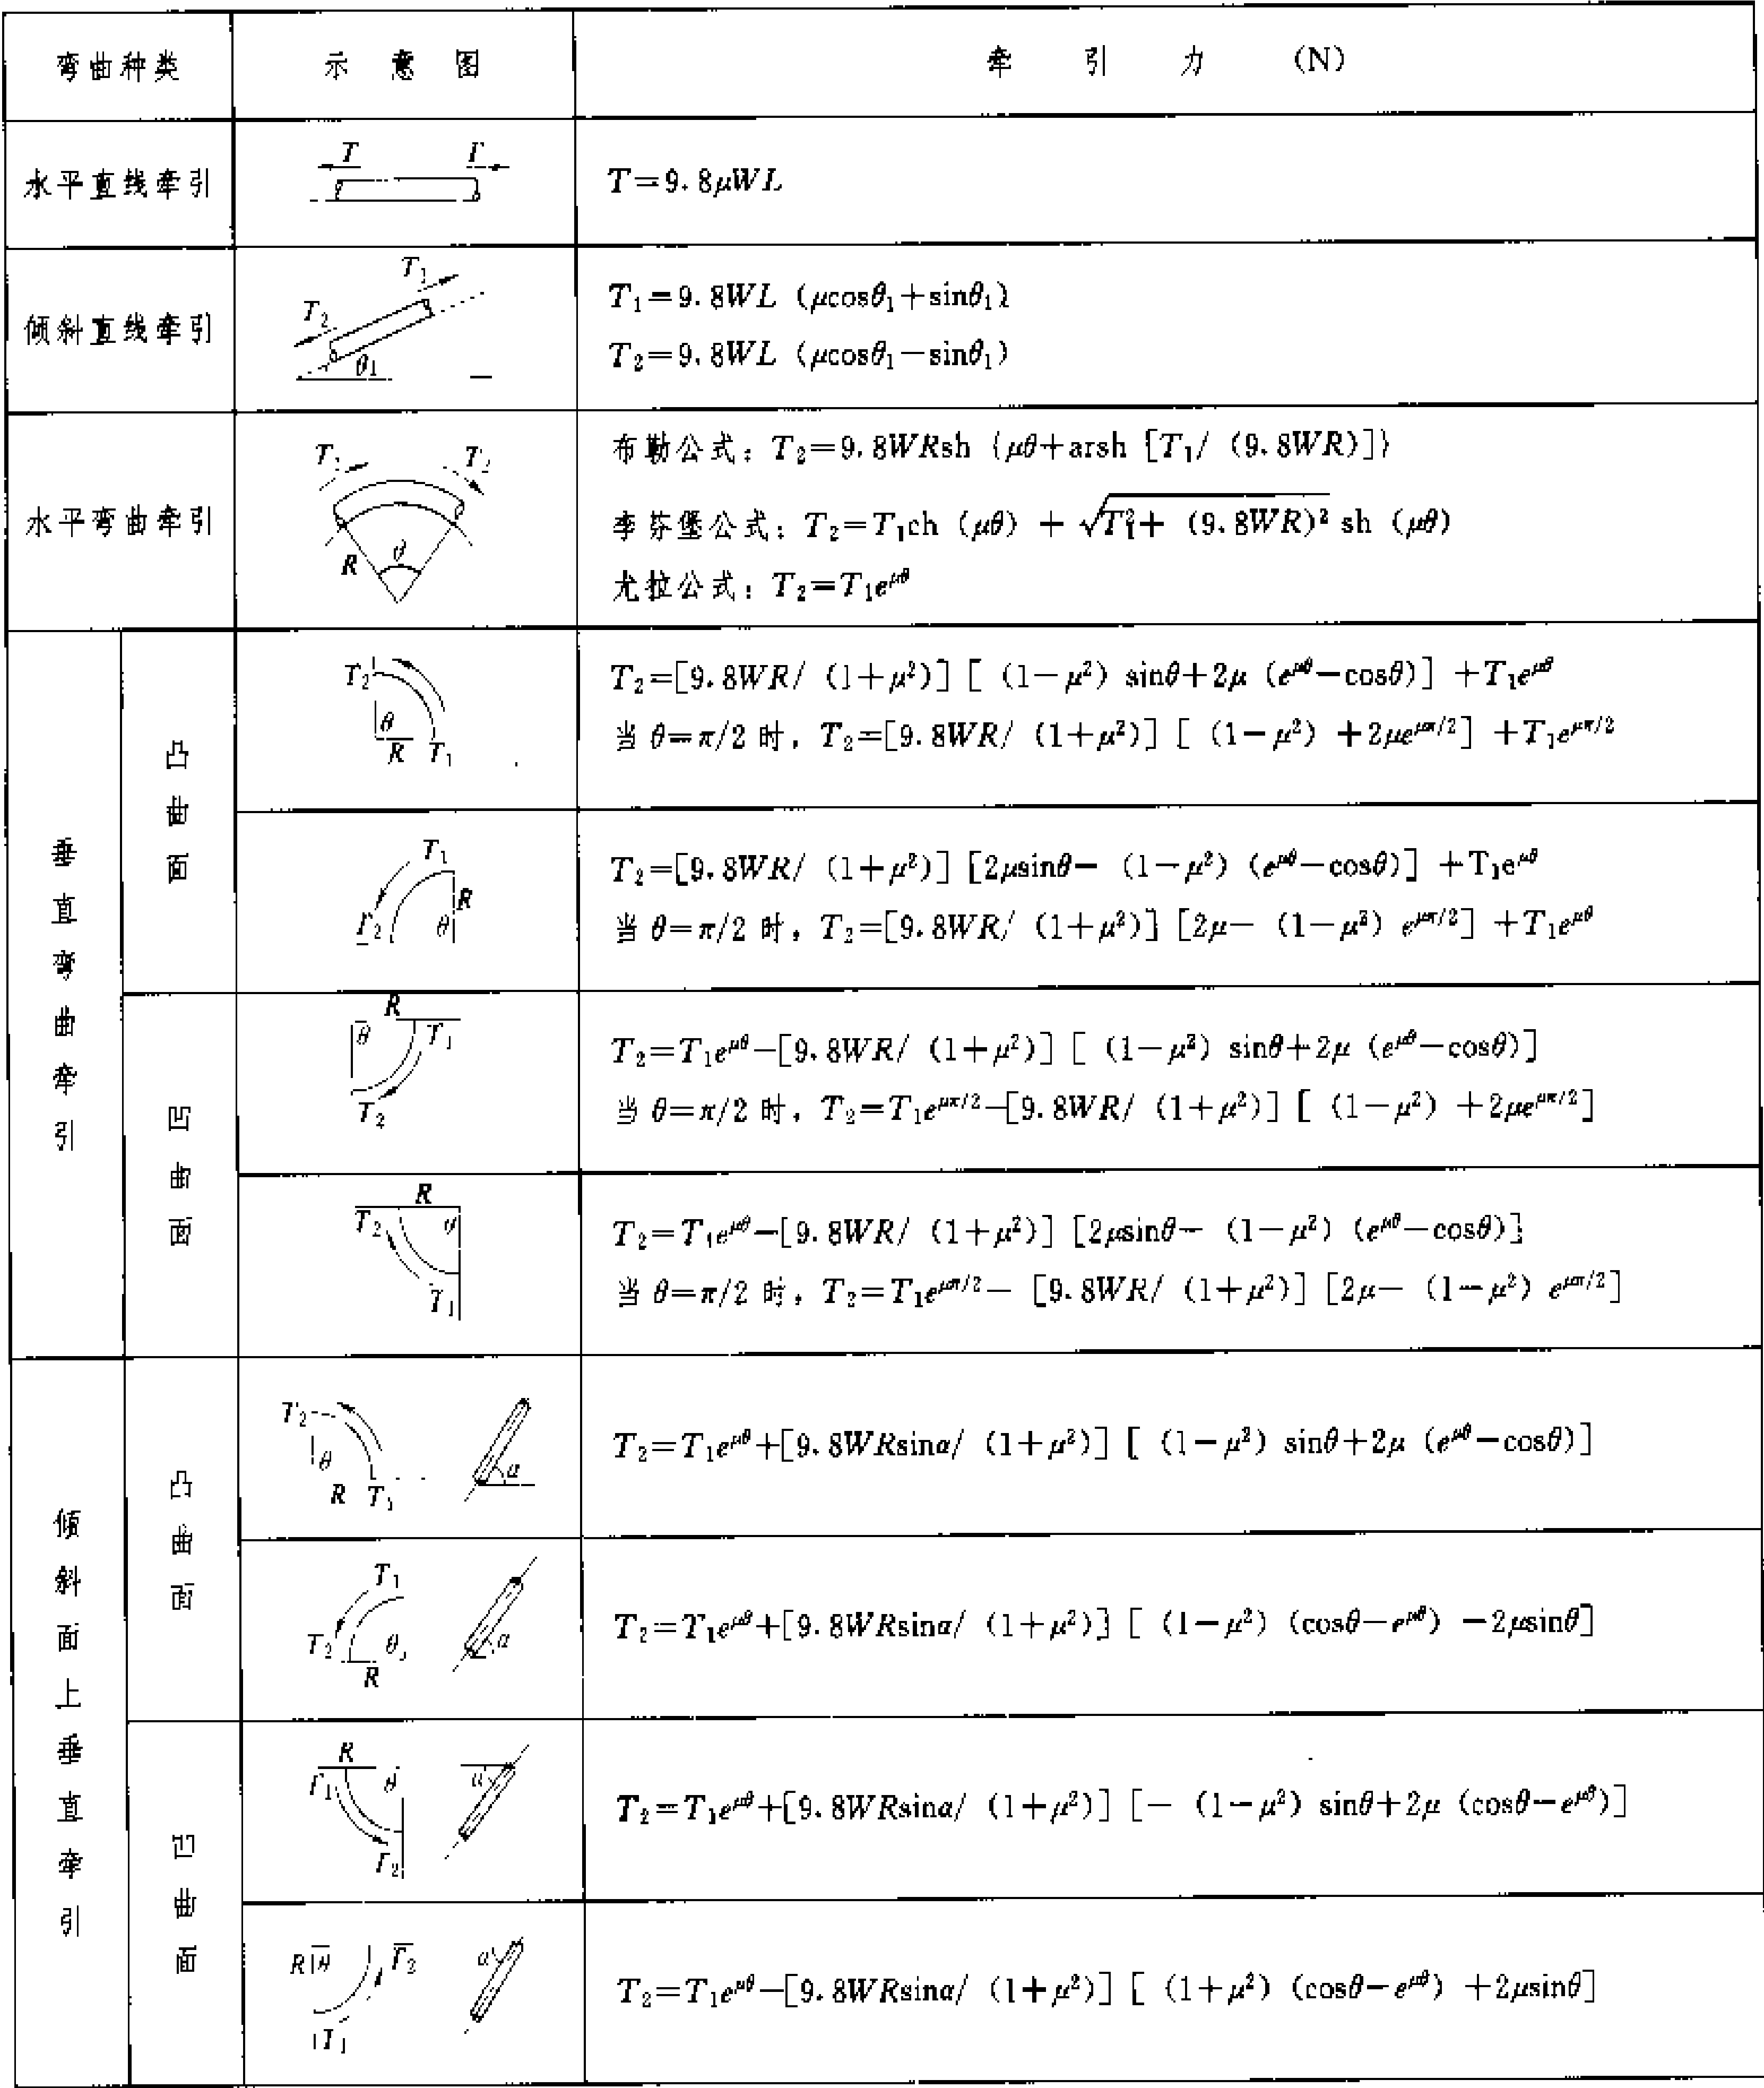 弯曲种类 示意图 牵引力 (N)
水平直线牵引
T T
T=9.8μWL
倾斜直线牵引
T₁
T₂
θ₁
T₁=9.8WL (μcosθ₁+sinθ₁)
T₂=9.8WL (μcosθ₁−sinθ₁)
水平弯曲牵引
T₁ T₂
R θ
布勒公式：T₂=9.8WRsh {μθ+arsh [T₁/ (9.8WR)]}
李芬堡公式：T₂=T₁ch (μθ) + √(T₁²+ (9.8WR)²) sh (μθ)
尤拉公式：T₂=T₁e^μθ
垂直弯曲牵引
凸曲面
T₂
θ
R T₁
T₂=[9.8WR/ (1+μ²)] [ (1−μ²) sinθ+2μ (e^μθ−cosθ)] +T₁e^μθ
当 θ=π/2 时，T₂=[9.8WR/ (1+μ²)] [ (1−μ²) +2μe^μπ/2] +T₁e^μπ/2
T₁
R
T₂ θ
T₂=[9.8WR/ (1+μ²)] [2μsinθ− (1−μ²) (e^μθ−cosθ)] +T₁e^μθ
当 θ=π/2 时，T₂=[9.8WR/ (1+μ²)] [2μ− (1−μ²) e^μπ/2] +T₁e^μθ
凹曲面
R
θ T₁
T₂
T₂=T₁e^μθ−[9.8WR/ (1+μ²)] [ (1−μ²) sinθ+2μ (e^μθ−cosθ)]
当 θ=π/2 时，T₂=T₁e^μπ/2−[9.8WR/ (1+μ²)] [ (1−μ²) +2μe^μπ/2]
R
T₂ θ
T₁
T₂=T₁e^μθ−[9.8WR/ (1+μ²)] [2μsinθ− (1−μ²) (e^μθ−cosθ)]
当 θ=π/2 时，T₂=T₁e^μπ/2− [9.8WR/ (1+μ²)] [2μ− (1−μ²) e^μπ/2]
倾斜面上垂直牵引
凸曲面
T₂
θ
R T₁ α
T₂=T₁e^μθ+[9.8WRsinα/ (1+μ²)] [ (1−μ²) sinθ+2μ (e^μθ−cosθ)]
T₁
T₂ θ α
R
T₂=T₁e^μθ+[9.8WRsinα/ (1+μ²)] [ (1−μ²) (cosθ−e^μθ) −2μsinθ]
凹曲面
R
T₁ θ α
T₂
T₂=T₁e^μθ+[9.8WRsinα/ (1+μ²)] [− (1−μ²) sinθ+2μ (cosθ−e^μθ)]
R θ T₂ α
T₁
T₂=T₁e^μθ−[9.8WRsinα/ (1+μ²)] [ (1+μ²) (cosθ−e^μθ) +2μsinθ]